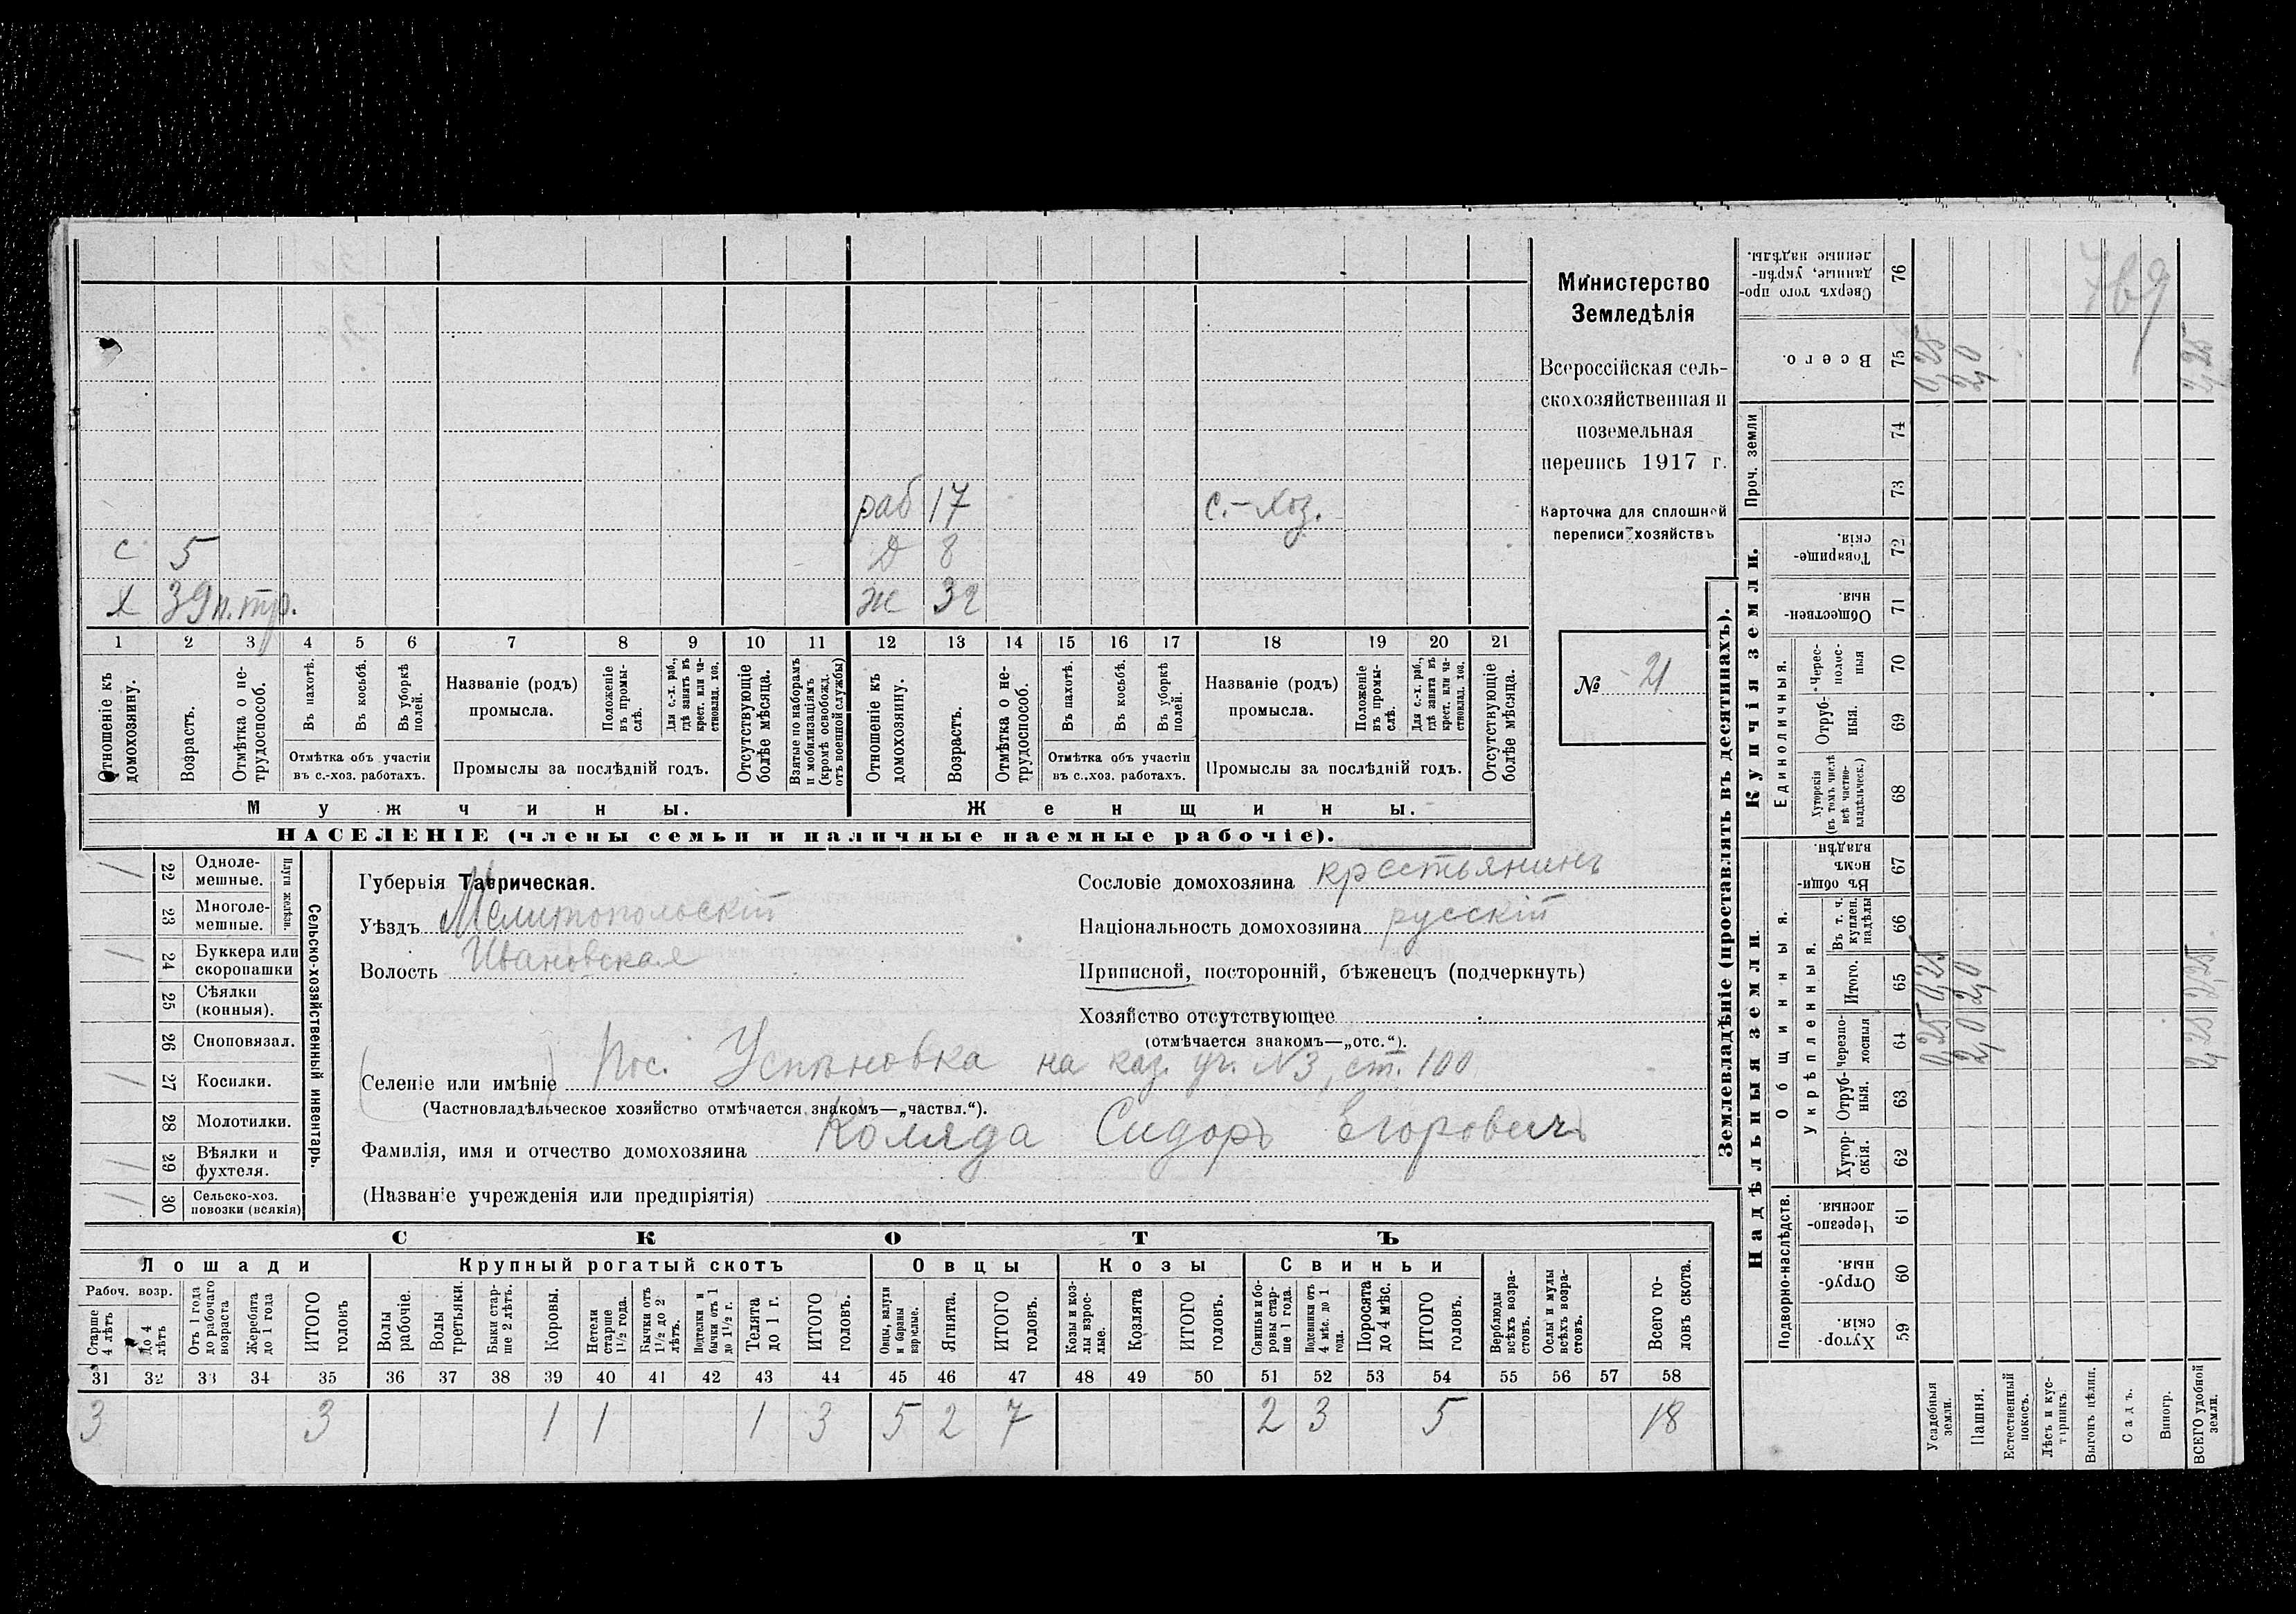 раб 17 с.-хоз.
с 5 д 8
х 39 н.тр. ж 32
1 2 3 4 5 6 7 8 9 10 11 12 13 14 15 16 17 18 19 20 21
Отношеніе къ домохозяину.
Возрастъ.
Отмѣтка о не-трудоспособ.
Въ пахотѣ.
Въ косьбѣ.
Въ уборкѣ полей.
Отмѣтка объ участіи
въ с.-хоз. работахъ.
Названіе (родъ)
промысла.
Положеніе въ промы-слѣ.
Для с.-х. раб., гдѣ занятъ въ крест. или ча-стновлад. хоз.
Промыслы за послѣдній годъ.
Отсутствующіе болѣе мѣсяца.
Взятые по наборамъ и мобилизаціямъ (кромѣ освобожд. отъ военной службы)
Отношеніе къ домохозяину.
Возрастъ.
Отмѣтка о не-трудоспособ.
Въ пахотѣ.
Въ косьбѣ.
Въ уборкѣ полей.
Отмѣтка объ участіи
въ с.-хоз. работахъ.
Названіе (родъ)
промысла.
Положеніе въ промы-слѣ.
Для с.-х. раб., гдѣ занята въ крест. или ча-стновлад. хоз.
Промыслы за послѣдній годъ.
Отсутствующіе болѣе мѣсяца.
Мужчины. Женщины.
НАСЕЛЕНІЕ (члены семьи и наличные наемные рабочіе).
Министерство
Земледѣлія
Всероссійская сель-
скохозяйственная и
поземельная
перепись 1917 г.
Карточка для сплошной
переписи хозяйствъ
№ 21
Сельско-хозяйственный инвентарь.
Плуги желѣзн.
22 Одноле-мешные. 1
23 Многоле-мешные.
24 Буккера или скоропашки 1
25 Сѣялки (конныя).
26 Сноповязал.
27 Косилки. 1
28 Молотилки.
29 Вѣялки и фухтеля. 1
30 Сельско-хоз. повозки (всякія) 1
Губернія Таврическая.
Уѣздъ Мелитопольскій
Волость Ивановская
Сословіе домохозяина крестьянинъ
Національность домохозяина русскій
Приписной, посторонній, бѣженецъ (подчеркнуть)
Хозяйство отсутствующее
(отмѣчается знакомъ—„отс.“).
Селеніе или имѣніе Пос. Успѣновка на каз. уч. №3, ст. 100
(Частновладѣльческое хозяйство отмѣчается знакомъ—„частвл.“).
Фамилія, имя и отчество домохозяина Коляда Сидоръ Егоровичъ
(Названіе учрежденія или предпріятія)
СКОТЪ
Лошади Крупный рогатый скотъ Овцы Козы Свиньи
Рабоч. возр.
Старше 4 лѣтъ
До 4 лѣтъ
Отъ 1 года до рабочаго возраста
Жеребята до 1 года
ИТОГО головъ
Волы рабочіе.
Волы третьяки.
Быки стар-ше 2 лѣтъ.
Коровы.
Нетели старше 1½ года.
Бычки отъ 1½ до 2 лѣтъ.
Подтелки и бычки отъ 1 до 1½ г.
Телята до 1 г.
ИТОГО головъ.
Овцы, валухи и бараны взрослые.
Ягнята.
ИТОГО головъ.
Козы и коз-лы взрос-лые.
Козлята
ИТОГО головъ.
Свиньи и бо-ровы стар-ше 1 года.
Подсвинки отъ 4 мѣс. до 1 года.
Поросята до 4 мѣс.
ИТОГО головъ.
Верблюды всѣхъ возра-стовъ.
Ослы и мулы всѣхъ возра-стовъ.
Всего го-ловъ скота.
31 32 33 34 35 36 37 38 39 40 41 42 43 44 45 46 47 48 49 50 51 52 53 54 55 56 57 58
3 3 1 1 1 3 5 2 7 2 3 5 18
Землевладѣніе (проставлять въ десятинахъ).
Надѣльныя земли. Купчія земли.
Подворно-наслѣдств.
Общинныя.
Укрѣпленныя.
Единоличныя.
Проч. земли
Хутор-скія. 59
Отруб-ныя. 60
Черезпо-лосныя. 61
Хутор-скія. 62
Отруб-ныя. 63
Черезпо-лосныя 64
Итого. 65
Въ т. ч. куплен. надѣлы 66
Въ общи-номъ владѣн. 67
Хуторскія (въ томъ числѣ всѣ частно-владѣльческ.) 68
Отруб-ныя. 69
Черес-полос-ныя 70
Обществен-ныя. 71
Товарище-скія. 72
73
74
Всего. 75
Сверхъ того про-данные, укрѣп-ленные надѣлы. 76
Усадебныя земли. 0,25 0,25 0,25
Пашня. 2,0 2,0 2,0
Естественный покосъ.
Лѣсъ и кус-тарникъ.
Выгонъ цѣлин.
Садъ.
Виногр.
ВСЕГО удобной земли. 2,25 2,25 2,25